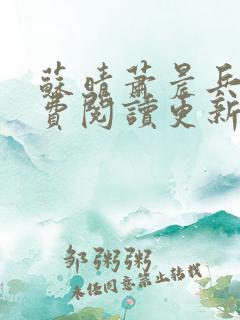 蘇晴蕭景兵
費閱讀更新
邹粥粥
未经同意禁止转载